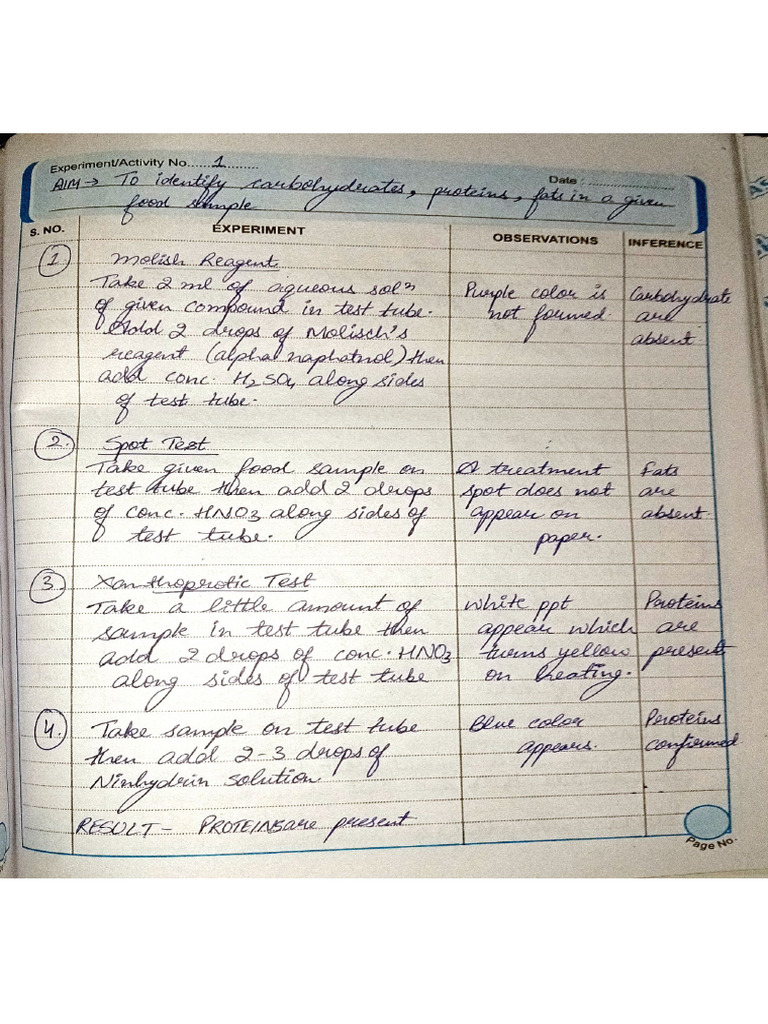 Experiment/Activity No......1..........
Date : ..................
AIM → To identify carbohyderates, proteins, fats in a given
food sample
S. NO. EXPERIMENT OBSERVATIONS INFERENCE
1. Molish Reagent
Take 2 ml of aqueous solⁿ Purple color is Carbohydrate
of given compound in test tube. not formed. are
Add 2 drops of Molisch's absent.
reagent (alpha naphatnol) then
add conc. H₂SO₄ along sides
of test tube.
2. Spot Test
Take given food sample on A treatment Fats
test tube then add 2 drops spot does not are
of conc. HNO3 along sides of appear on absent.
test tube. paper.
3. Xanthoprotic Test
Take a little amount of white ppt Proteins
sample in test tube then appear which are
add 2 drops of conc. HNO3 turns yellow present
along sides of test tube on heating.
4. Take sample on test tube Blue color Proteins
then add 2-3 drops of appears. confirmed
Ninhydrin solution.
RESULT - PROTEINS are present
Page No.